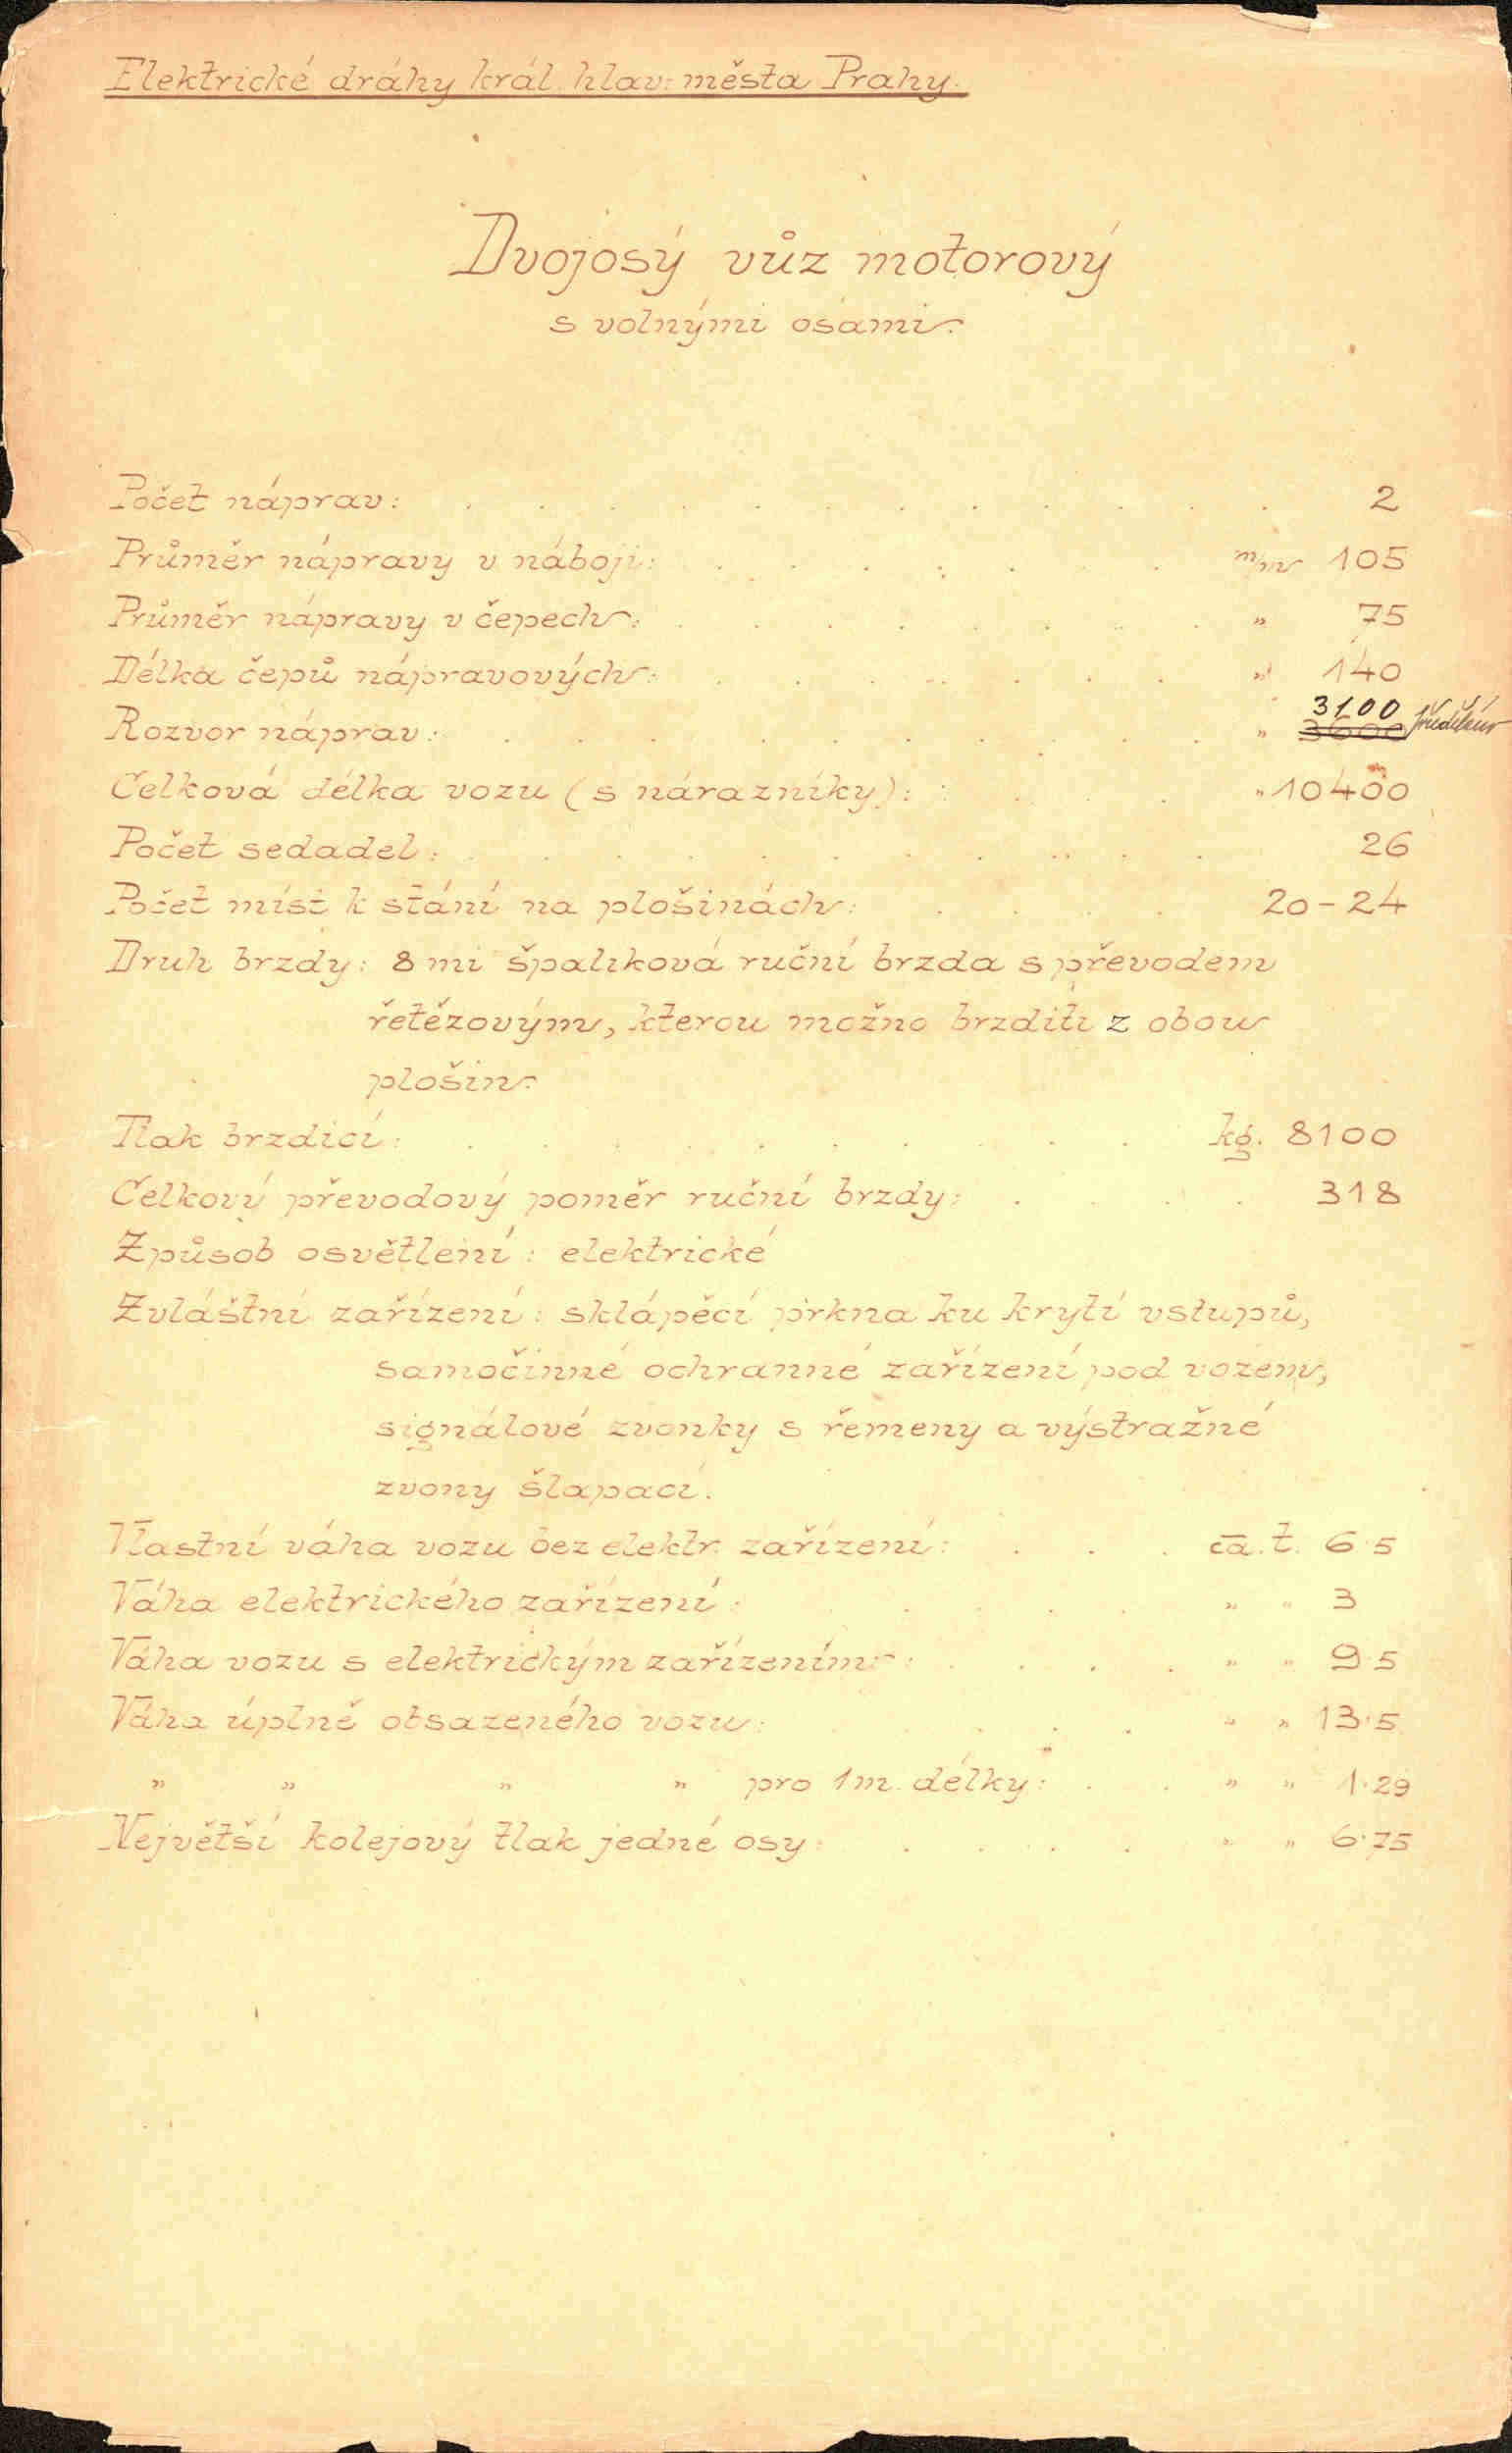 Elektrické dráhy král. hlav. města Prahy.
Dvojosý vůz motorový
s volnými osami.
Počet náprav: 2
Průměr nápravy v náboji: m/m 105
Průměr nápravy v čepech: " 75
Délka čepů nápravových: " 140
3100
Rozvor náprav: " 3600
Celková délka vozu (s nárazníky): " 10400
Počet sedadel: 26
Počet míst k stání na plošinách: 20-24
Druh brzdy: 8 mi špalíková ruční brzda s převodem
řetězovým, kterou možno brzditi z obou
plošin.
Tlak brzdicí: kg. 8100
Celkový převodový poměr ruční brzdy: 318
Způsob osvětlení: elektrické
Zvláštní zařízení: sklápěcí prkna ku krytí vstupů,
samočinné ochranné zařízení pod vozem,
signálové zvonky s řemeny a výstražné
zvony šlapací.
Vlastní váha vozu bez elektr. zařízení: ca. t. 6·5
Váha elektrického zařízení: " " 3
Váha vozu s elektrickým zařízením: " " 9·5
Váha úplně obsazeného vozu: " " 13·5
" " " " pro 1m. délky: " " 1·29
Největší kolejový tlak jedné osy: " " 6·75